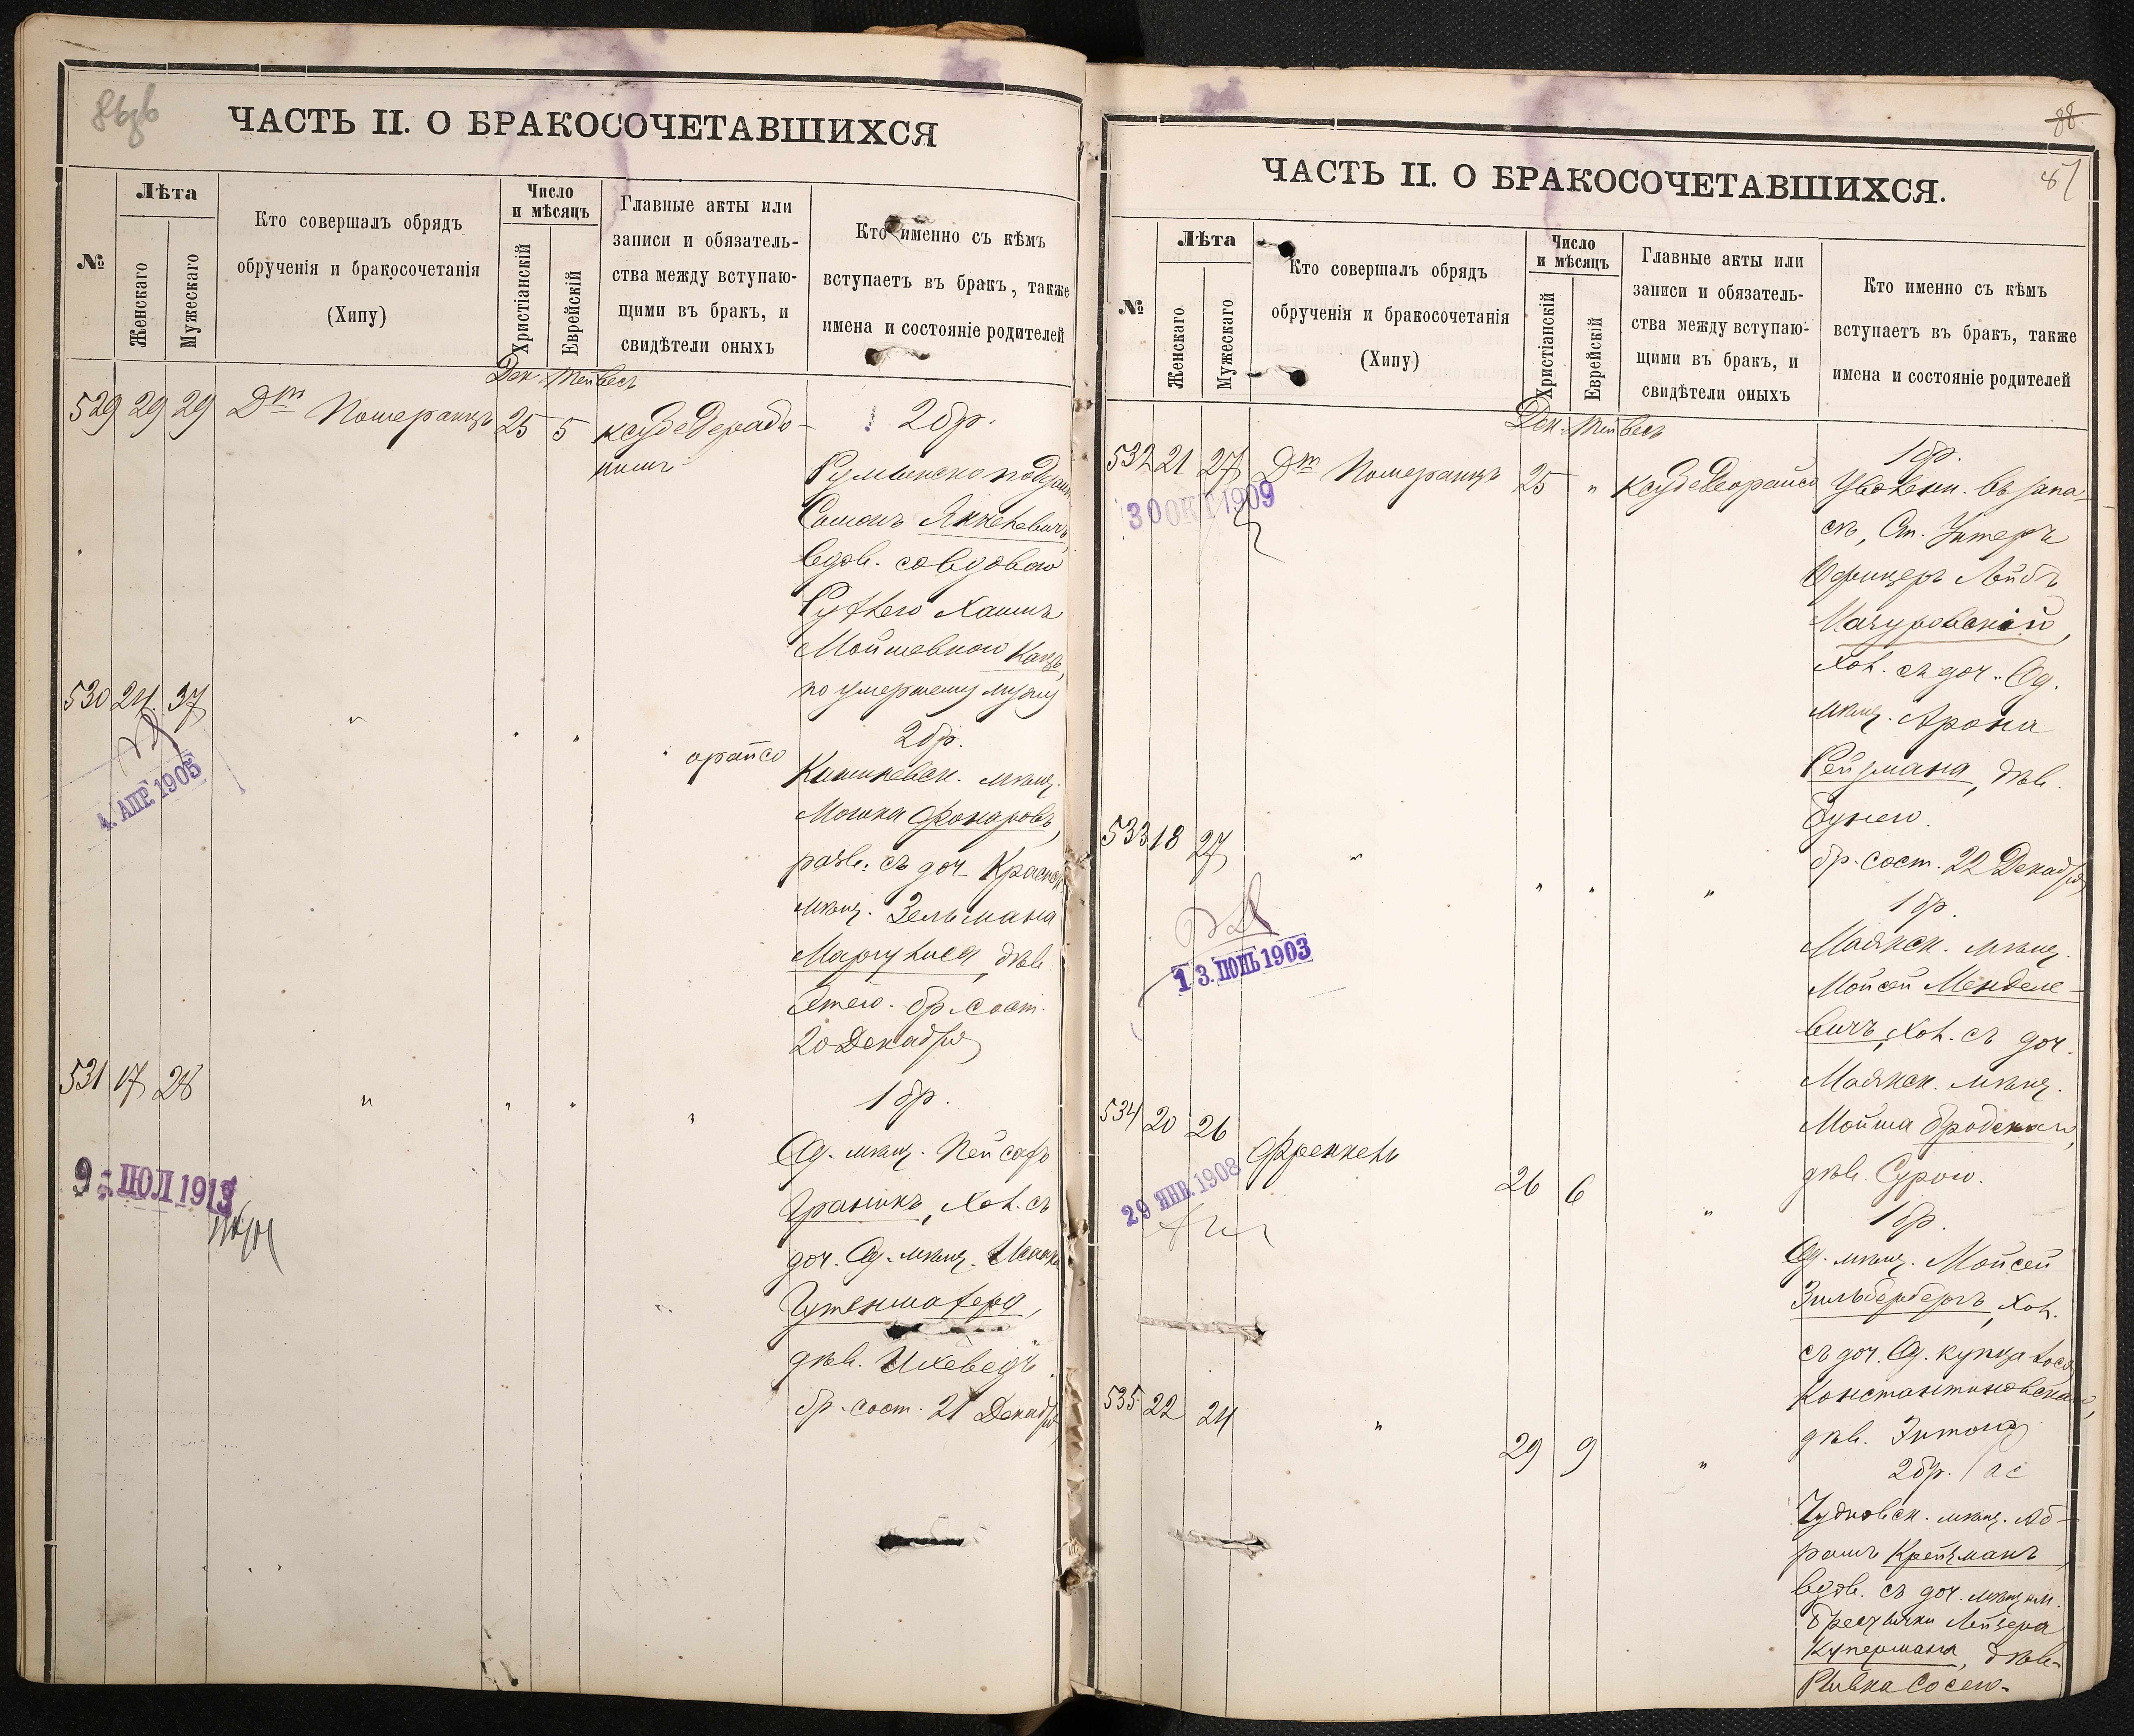 ЧАСТЬ II. О БРАКОСОЧЕТАВШИХСЯ
№
Лѣта
Женскаго
Мужескаго
Кто совершалъ обрядъ
обрученія и бракосочетанія
(Хипу)
Число
и мѣсяцъ
Христіанскій
Еврейскій
Главные акты или
записи и обязатель-
ства между вступаю-
щими въ бракъ, и
свидѣтели оныхъ
Кто именно съ кѣмъ
вступаетъ въ бракъ, также
имена и состояніе родителей
Дек. Тейвесъ
529 29 29 Дтъ Померанцъ 25 5
2 бр.
Румынскоподдан
Соломонъ
вдов. со вдовою
Рухлею Хаимъ
Мойшевною Кацъ,
по умершему мужу
530 24 37 " " "
орайсо
4. АПР. 1905
2 бр.
Кишиневск. мѣщ.
Мошка Фонаровъ,
разв. съ доч.
мѣщ. Зельмана
дѣв.
Этею. бр. сост.
20 Декабря
531 17 28 " " " "
9 - ІЮЛ 1913
1 бр.
Од. мѣщ. Пейсахъ
Граникъ, хол. съ
доч. Од. мѣщ.
Гутеншафера,
дѣв. Ихеведъ
бр. сост. 21 Декабря
88
87
ЧАСТЬ II. О БРАКОСОЧЕТАВШИХСЯ.
№
Лѣта
Женскаго
Мужескаго
Кто совершалъ обрядъ
обрученія и бракосочетанія
(Хипу)
Число
и мѣсяцъ
Христіанскій
Еврейскій
Главные акты или
записи и обязатель-
ства между вступаю-
щими въ бракъ, и
свидѣтели оныхъ
Кто именно съ кѣмъ
вступаетъ въ бракъ, также
имена и состояніе родителей
Дек. Тейвесъ
532 21 27 Дтъ Померанцъ 25 "
30 ОКТ 1909
1 бр.
Уволен. въ запа-
съ, Ст. Унтеръ
Офицеръ Лейбъ
Мазуровскій,
хол. съ доч. Од.
мѣщ. Арона
Рейзмана, дѣв.
Бунею.
бр. сост. 22 Декабря
533 18 27 " " " "
13. ІЮНЬ 1903
1 бр.
Маякск. мѣщ.
Мойсей Менделе-
вичъ, хол. съ доч.
Маякск. мѣщ.
Мойша Бродскаго,
дѣв. Сурою.
534 20 26 Френкель 26 6 "
29 ЯНВ. 1908
1 бр.
Од. мѣщ. Мойсей
Зильбербергъ, хол.
съ доч. Од. купца
Константиновскаго,
дѣв.
535 22 24 " 29 9 "
2 бр.
Чудновск. мѣщ. Аб-
рамъ Крейцманъ
вдов. съ доч. мѣщ.
Лейзера
Купермана, дѣв.
Ривка Сосею.